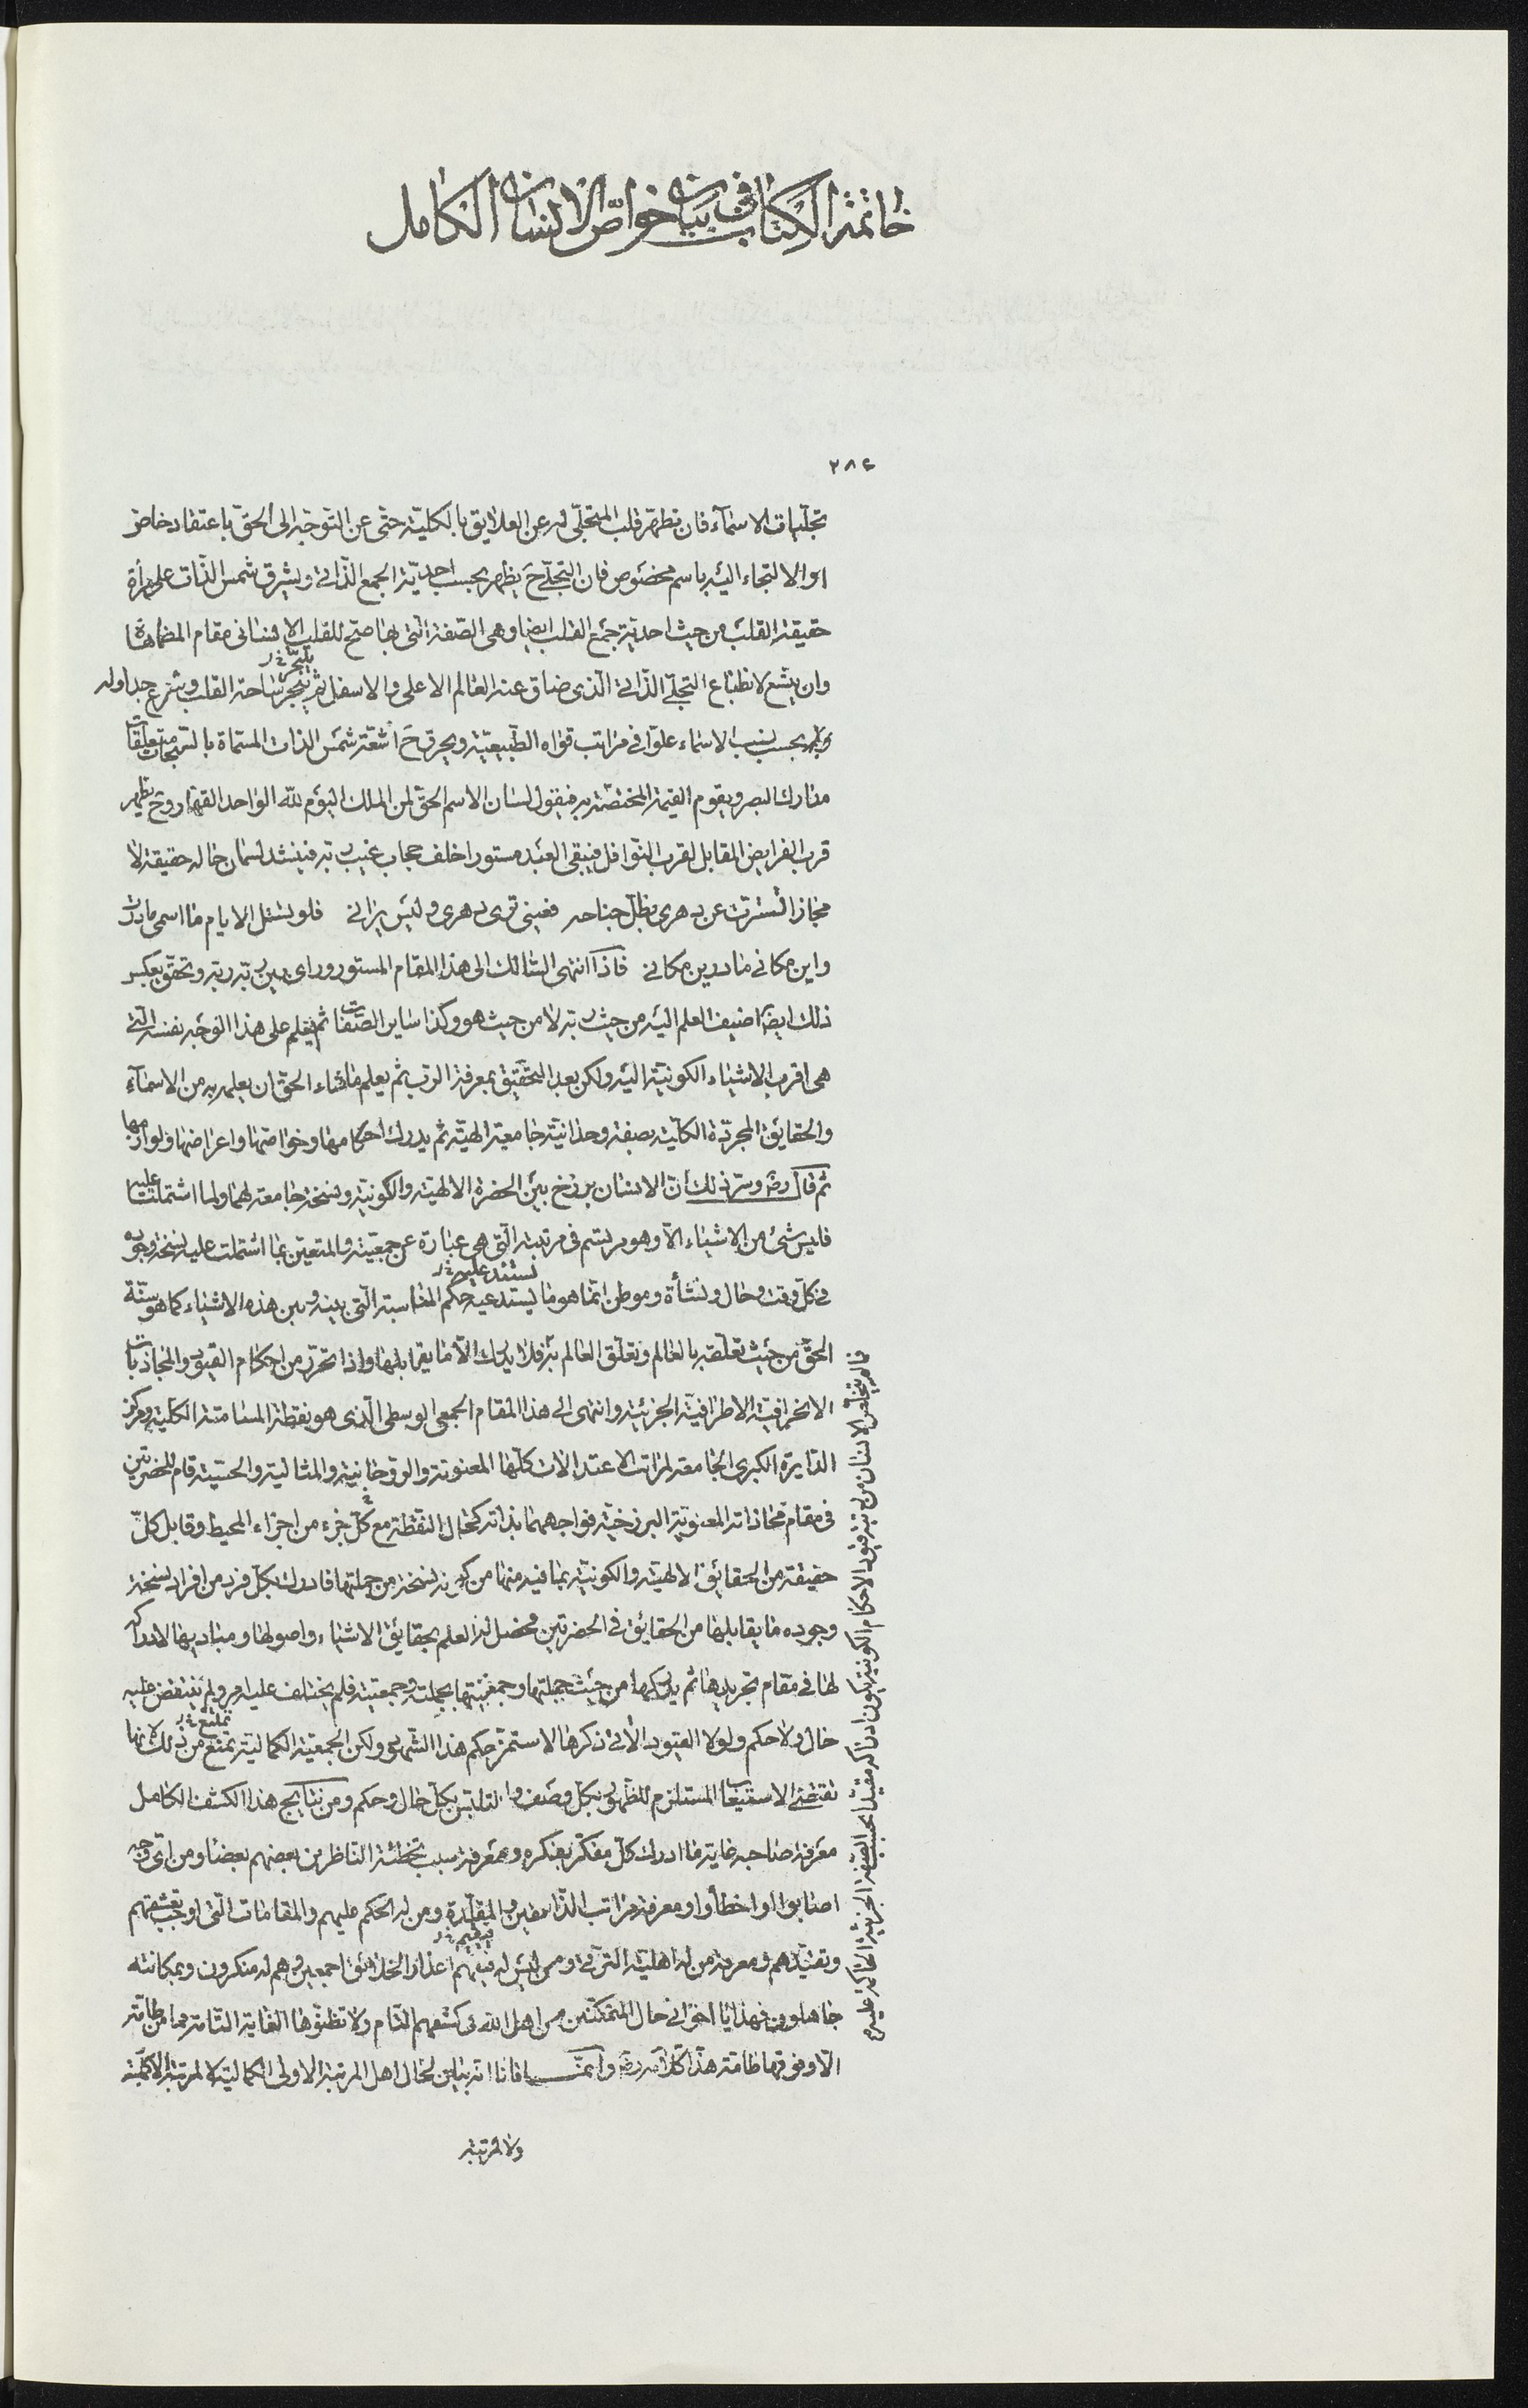 خاتمة الكتاب في بيان خواص الانسان الكامل
٢٨٤
تجلّيات الاسماء فان تطهّر قلب المتجلّى له عن العلايق بالكلّيّة حتّى عن التوجّه الى الحق باعتقاد خاص
او الالتجاء اليه باسم مخصوص فان التجلّي ح يظهر بحسب احديّة الجمع الذّاتي ويشرق شمس الذّات على مرأة
حقيقة القلب من حيث احديّة جمع القلب ايضا وهى الصّفة الّتي بها صحّ للقلب الانساني مقام المضاهاة
وان يتّسع لانطباع التجلّي الذّاتي الّذى ضاق عنه العالم الاعلى والاسفل ثم ينجر ساحة القلب وتتفرع جداوله
بحسب نسب الاسماء علوّا في مراتب قواه الطّبيعيّة ويحرق ح اشعّة شمس الذات المسمّاة بالسّبحات متعلّقات
مدارك البصر ويقوم القيمة المختصّة به فيقول لسان الاسم الحقّ لمن الملك اليوم لله الواحد القهار وح يظهر
قرب الفرايض المقابل لقرب النّوافل فيبقى العبد مستورا خلف حجاب غيب ربّه فينشد لسان حاله حقيقة لا
مجازا تستّرت عن دهرى بظلّ جناحه فعيني ترى دهرى وليس يراني فلو تسئل الايام ما اسمى ما درت
واين مكاني ما درين مكاني فاذا انتهى السّالك الى هذا المقام المستور وراى بعين ربّه ربّه وتحقّق بعكس
ذلك ايضا اضيف العلم اليه من حيث ربّه لا من حيث هو وكذا ساير الصّفات ثم يعلم على هذا الوجه نفسه الّتي
هى اقرب الاشياء الكونيّة اليه ولكن بعد التحقيق بمعرفة الربّ ثم يعلم ما شاء الحقّ ان يعلمه به من الاسماء
والحقايق المجرّدة الكلّيّة بصفة وحدانيّة جامعة الهيّة ثم يدرك احكامها وخواصّها واعراضها ولوازمها
ثم قال رض وسرّ ذلك انّ الانسان برزخ بين الحضرة الالهيّة والكونيّة ونسخة جامعة لهما ولما اشتملتا عليه
فليس شئ من الاشياء الّا وهو مرتسم في مرتبته الّتي هى عبارة عن جمعيّته والمتعيّن بما اشتملت عليه نسخة وجوده
في كلّ وقت وحال ونشأة وموطن انّما هو ما يستدعيه حكم المناسبة الّتي بينه وبين هذه الاشياء كما هو سنّة
الحقّ من حيث تعلّقه بالعالم وتعلّق العالم به فلا يدرك الّا ما يقابلها واذا تحرّر من احكام القيود والمجاذبات
الانحرافيّة الاطرافيّة الجزئيّة وانتهى الى هذا المقام الجمعى الوسطى الّذى هو نقطة المسامتة الكلّيّة ومركز
الدّايرة الكبرى الجامعة لمراتب الاعتدالات كلّها المعنويّة والروحانيّة والمثاليّة والحسّيّة قام للحضرتين
في مقام محاذاته المعنويّة البرزخيّة فواجههما بذاته كحال النقطة مع كلّ جزء من اجزاء المحيط وقابل كلّ
حقيقة من الحقايق الالهيّة والكونيّة بما فيه منها من كونه نسخة من جملتها فادرك بكلّ فرد من افراد نسخة
وجوده ما يقابلها من الحقايق في الحضرتين فحصل له العلم بحقايق الاشياء واصولها ومباديها لادراكه
لها في مقام تجريدها ثم يدركها من حيث جملتها وجمعيّتها بجملته وجمعيّته فلم يختلف عليه امر ولم ينتقض عليه
حال ولا حكم ولولا القيود الّاتي ذكرها لاستمرّ حكم هذا الشّهود ولكن الجمعيّة الكماليّة تمنع من ذلك لانّها
تقتضي الاستيعاب المستلزم للظّهور بكلّ وصف والتلبّس بكلّ حال وحكم ومن نتايج هذا الكشف الكامل
معرفة صاحبه غاية ما ادرك كلّ مفكّر بفكره ومعرفة سبب تخطئة الناظرين بعضهم بعضا ومن اىّ وجه
اصابوا او اخطأوا ومعرفة مراتب الذّائقين والمقلّدة ومن له الحكم عليهم والمقامات الّتي اوجب تعشّقهم
وتقيّدهم ومعرفة من له اهليّة الترقّي ومن ليس له فيقيم اعذار الخلايق اجمعين وهم له منكرون وبمكانته
جاهلون فهذا يا اخواني حال المتمكّنين من اهل الله في كشفهم التّام ولا تظنّوها الغاية التامّة فما من طامّة
الّا وفوقها طامّة هذا كلامه رض وانّما قلنا انّه بيان لحال اهل المرتبة الاولى الكماليّة لا لمرتبة الاكمليّة
ولا لمرتبة
فالم يتخلّص الانسان من ربقة قيود الاحكام الكونيّة يكون ادراكه مقيّدا بحسب الصّفة الجزئيّة الحاكمة عليه